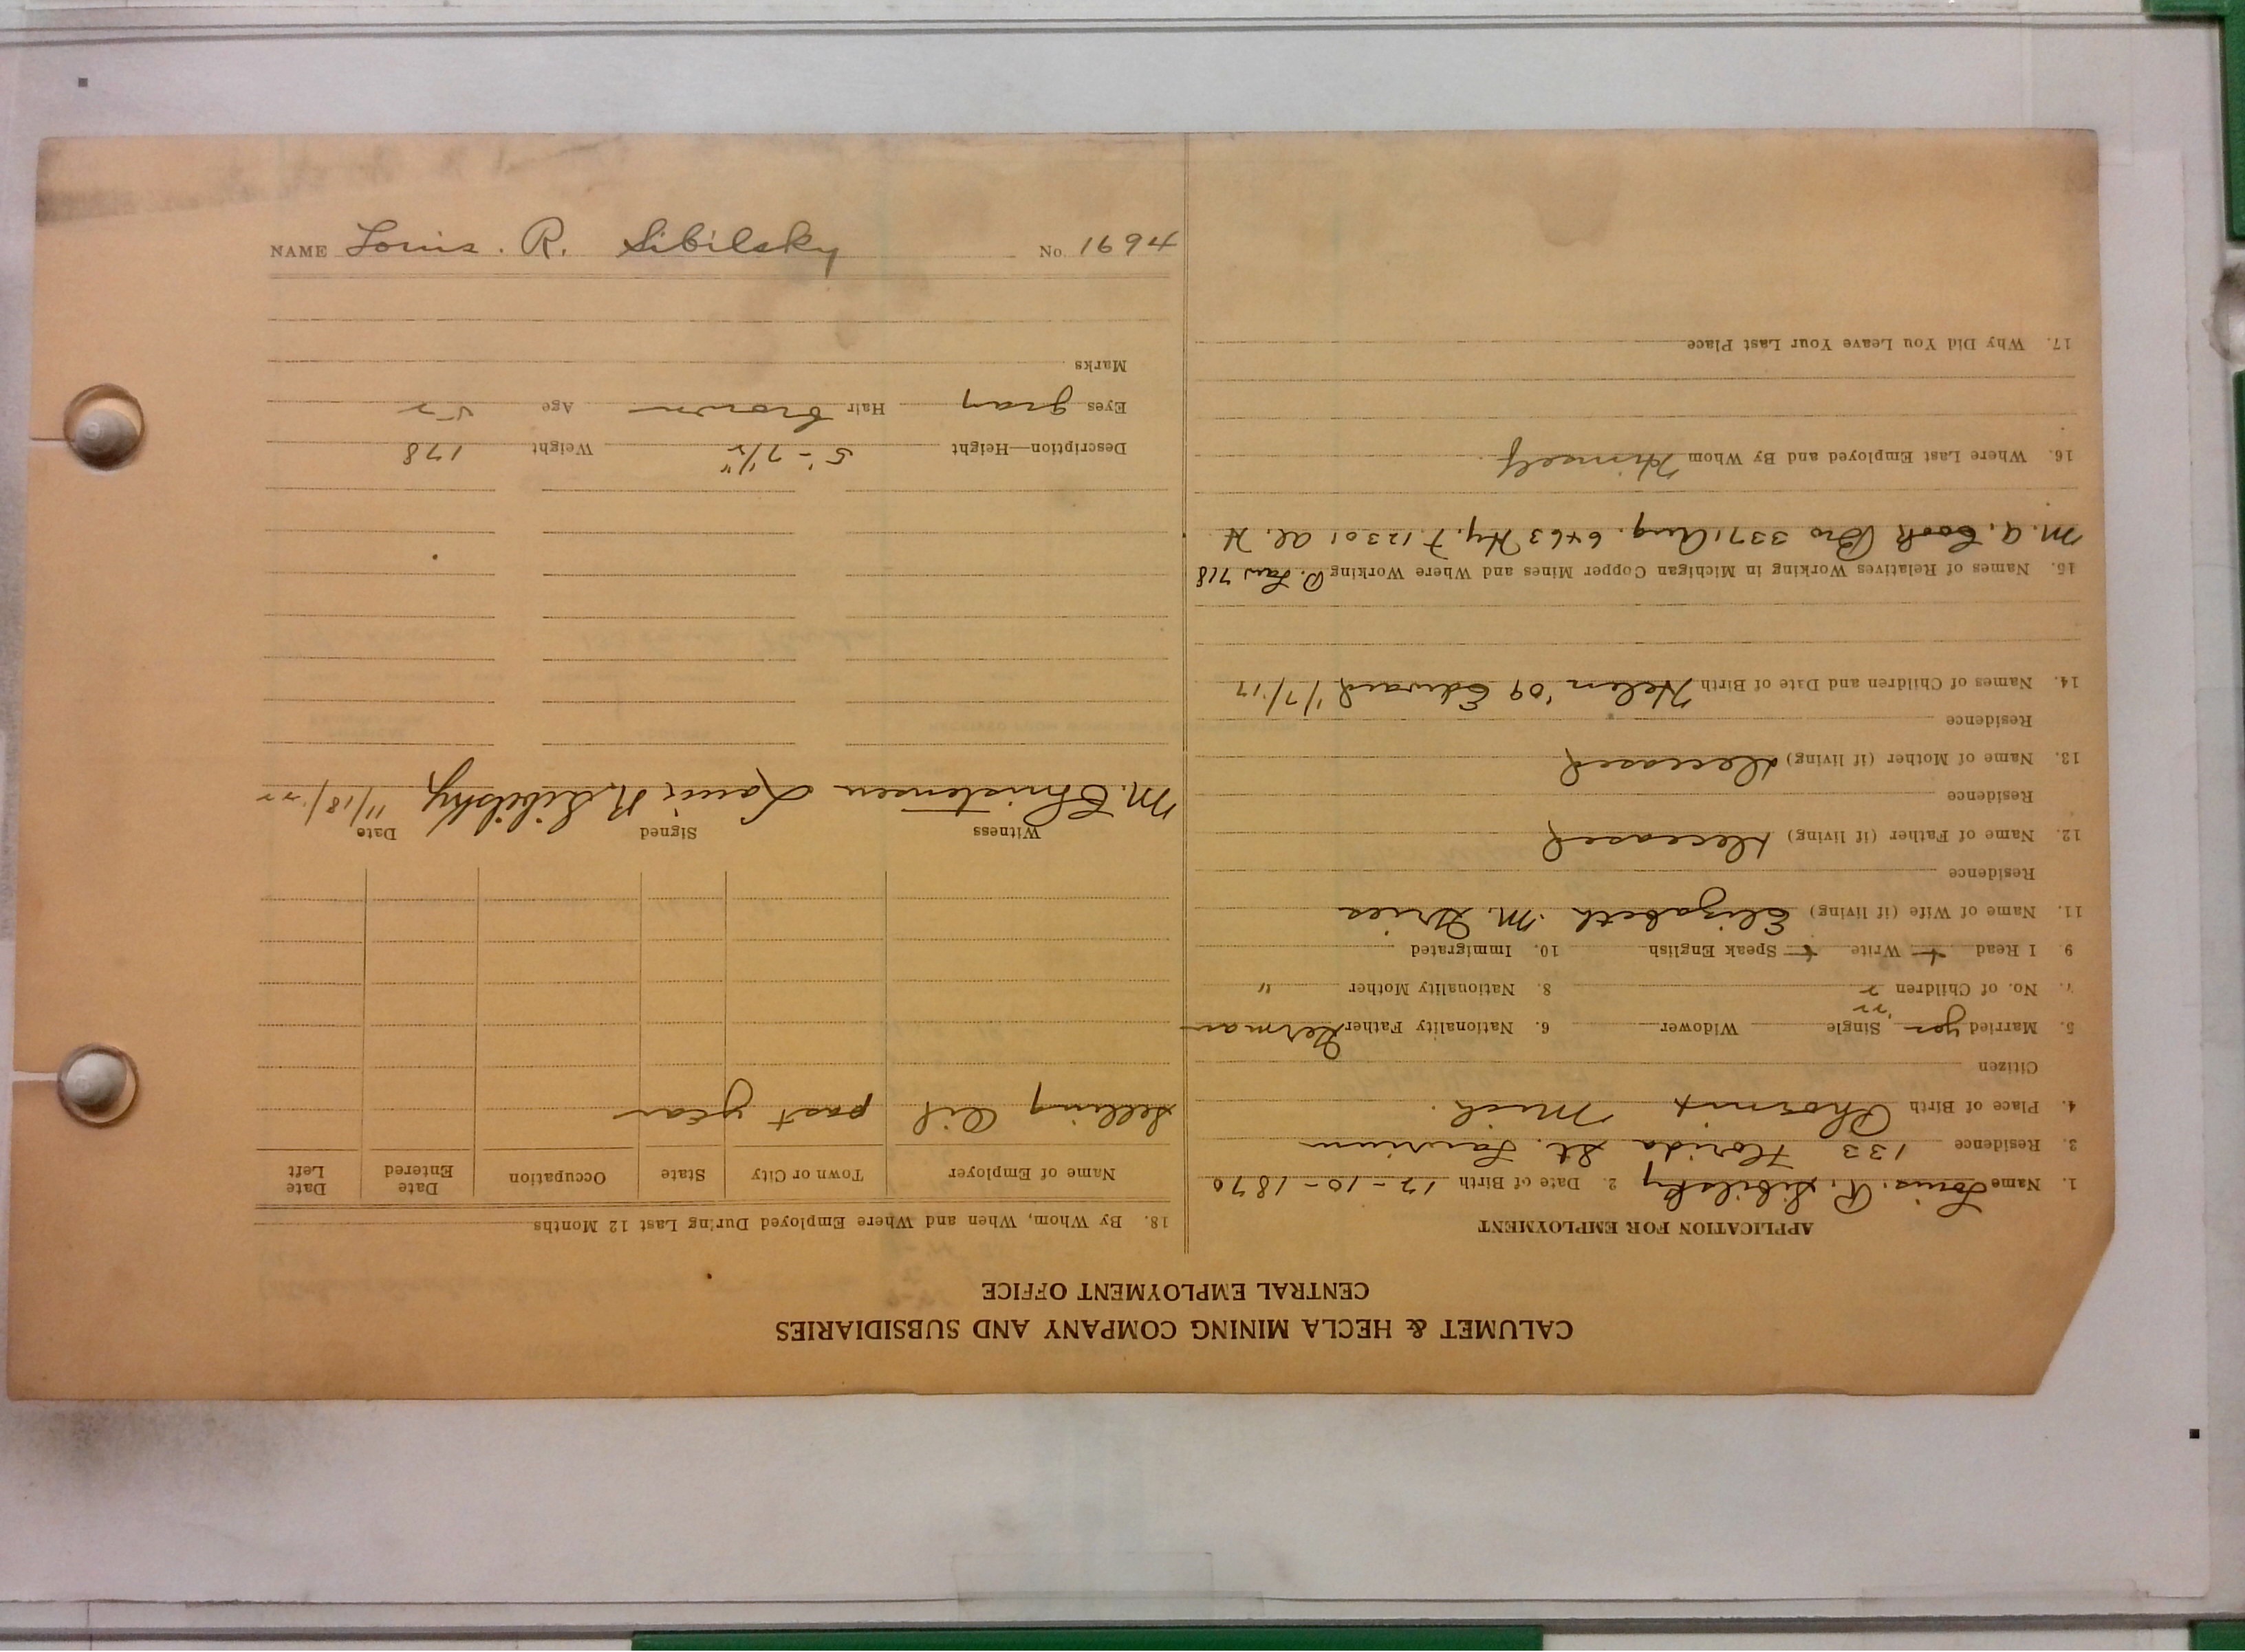 CALUMET & HECLA MINING COMPANY AND SUBSIDIARIES
CENTRAL EMPLOYMENT OFFICE
APPLICATION FOR EMPLOYMENT
1. Name Louis. R. Sibilsky 2. Date of Birth 12-10-1870
3. Residence 133 Florida St. Laurium
4. Place of Birth Phoenix Mich.
Citizen
5. Married yes Single Widower 6. Nationality Father German
7. No. of Children 2 8. Nationality Mother "
9. I Read Write Speak English 10. Immigrated
11. Name of Wife (if living) Elizabeth M. Gries
Residence
12. Name of Father (if living) deceased
Residence
13. Name of Mother (if living) deceased
Residence
14. Names of Children and Date of Birth Helen '09 Edward 1/7/'17
15. Names of Relatives Working in Michigan Copper Mines and Where Working Law 718
M. A. Cook Bro 3371 Aug. 6463 Hy. F. 12301 Al. H
16. Where Last Employed and By Whom Himself
17. Why Did You Leave Your Last Place
18. By Whom, When and Where Employed During Last 12 Months
Name of Employer Town or City State Occupation Date Entered Date Left
Selling Oil past year
Witness Signed Date
M. Christensen Louis R. Sibilsky 11/18/'22
Description—Height 5'-7 1/2" Weight 178
Eyes gray Hair brown Age 52
Marks
NAME Louis. R. Sibilsky No. 1694